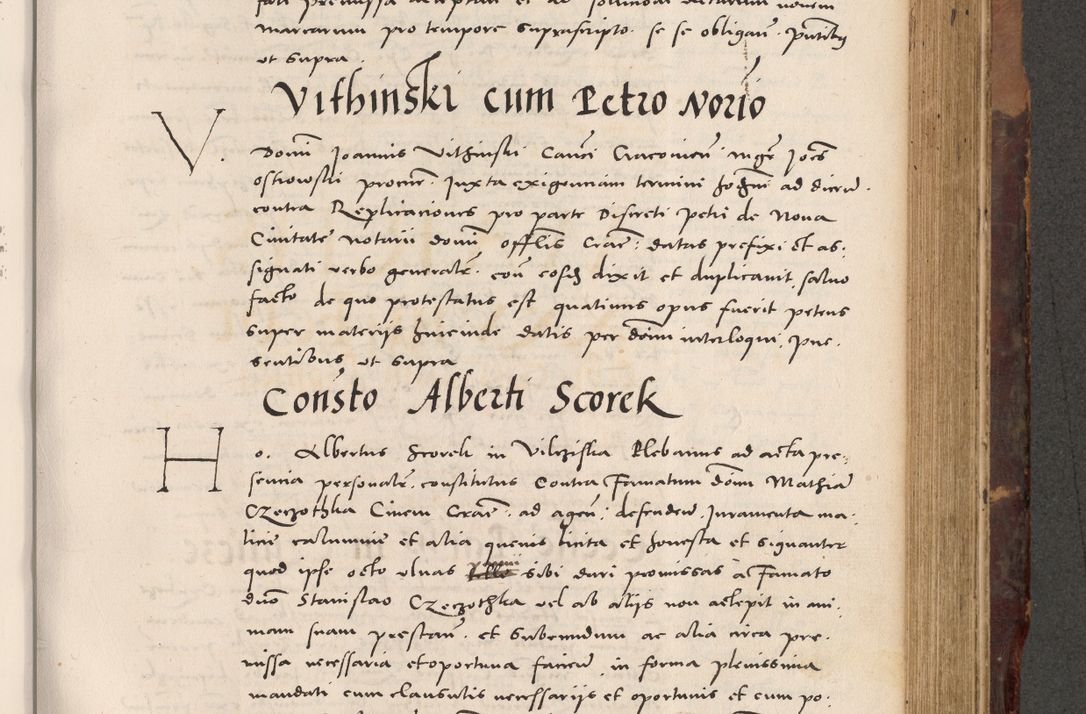 marcarum pro tempore suprascripto. se se obligan̄. pn̄tibq
ut supra.
Vithinski cum Petro Norio
V. Domī Joannis Vithinski Can̄ci Cracovien̄ mgr̄ Joēs
ostrowski procur̄. Juxta exigenciam termini hodīni ad dicen̄.
contra Replicaciones pro parte Discreti Petri de Nova
Civitate Notarii domī offlis Crac̄: datas prefixi et as:
signati verbo generalr̄. con̄ eosd dixit et duplicavit, salvo
facto de quo protestatus est quatinus opus fuerit petens
super materijs hincinde datis per domī interloqui, pre.
sentibus ut supra
Con̄sto Alberti Scorek
Ho. Albertus Scorek in Vilcziska Plebanus ad acta pre:
sencia personalr̄. constitutus Contra Famatum Domī Mathiā
Czeczothka Civem Crac̄. ad agen̄: defenden̄ Juramenta ma:
licie calumnie et alia quevis licita et honesta et signanter
quod ipse octo ulnas sibi dari promissas a Famato
duō Stanislao Czeczothka vel ab alijs non accepit in ani.
mam suam prestan̄. et subeundum ac alia circa pre.
missa necessaria et oportuna facien̄. in forma plenissima
mandati cum clausulis necessarijs et oportunis et cum po.